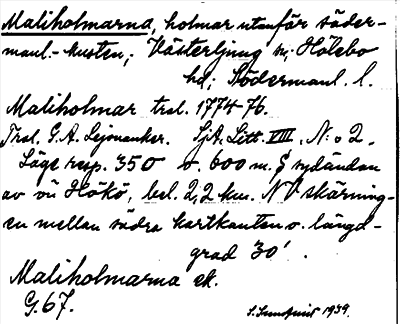 Maliholmarna, holmar utanför söder-
manl.-kusten; Västerljung sn; Hölebo
hd; Södermanl. l.
Maliholmar tral. 1774-76.
Tral. G. A. Lejonanker. Sjk. Litt. VIII, N:o 2.
Läge resp. 350 o. 600 m. S sydändan
av ön Hökö, bel. 2,2 km. NV skärning-
en mellan södra kartkanten o. längd-
grad 30'.
Maliholmarna ek.
G. 67.
S. Sundquist 1939.